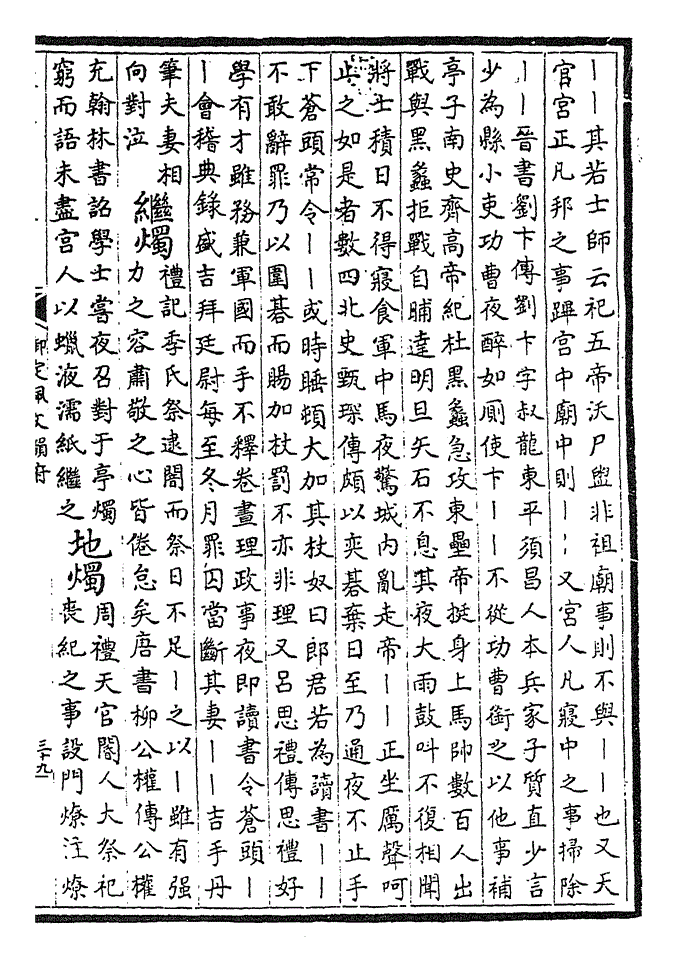 ｜｜其若士師云祀五帝沃尸盥非祖廟事則不與｜｜也又天
官宮正凡邦之事蹕宮中廟中則｜｜又宮人凡寢中之事掃除
｜｜晉書劉卞傳劉卞字叔龍東平須昌人本兵家子質直少言
少為縣小吏功曹夜醉如厠使卞｜｜不從功曹銜之以他事補
亭子南史齊高帝紀杜黑蠡急攻東壘帝挺身上馬帥數百人出
戰與黑蠡拒戰自晡達明旦矢石不息其夜大雨鼓叫不復相聞
將士積日不得寢食軍中馬夜驚城内亂走帝｜｜正坐厲聲呵
止之如是者數四北史甄琛傳頗以奕碁棄日至乃通夜不止手
下蒼頭常令｜｜或時睡頓大加其杖奴曰郎君若為讀書｜｜
不敢辭罪乃以圍碁而賜加杖罰不亦非理又吕思禮傳思禮好
學有才雖務兼軍國而手不釋卷晝理政事夜即讀書令蒼頭｜
｜會稽典録盛吉拜廷尉每至冬月罪囚當斷其妻｜｜吉手丹
筆夫妻相
向對泣
繼燭
禮記季氏祭逮闇而祭日不足｜之以｜雖有强
力之容肅敬之心皆倦怠矣唐書柳公權傳公權
充翰林書詔學士嘗夜召對于亭燭
窮而語未盡宫人以蠟液濡紙繼之
地燭
周禮天官閽人大祭祀
喪紀之事設門燎注燎
御定佩文韻府
三十九